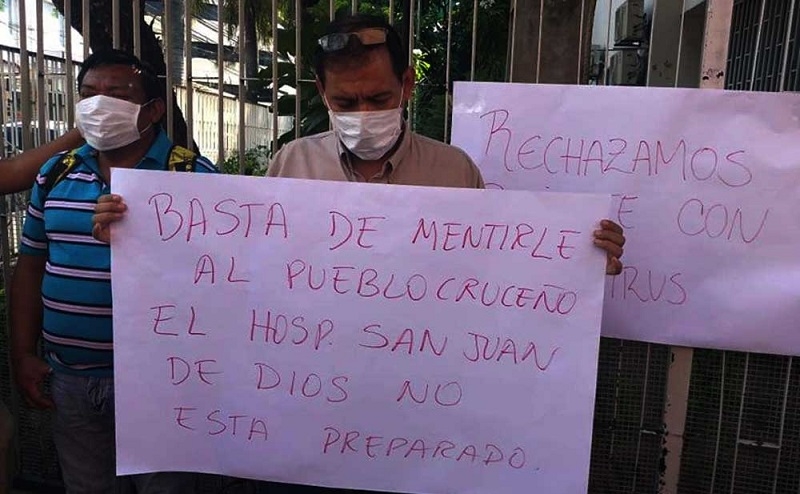 BASTA DE MENTIRLE
AL PUEBLO CRUCEÑO
EL HOSP. SAN JUAN
DE DIOS NO
ESTA PREPARADO.
RECHAZAMOS
CON